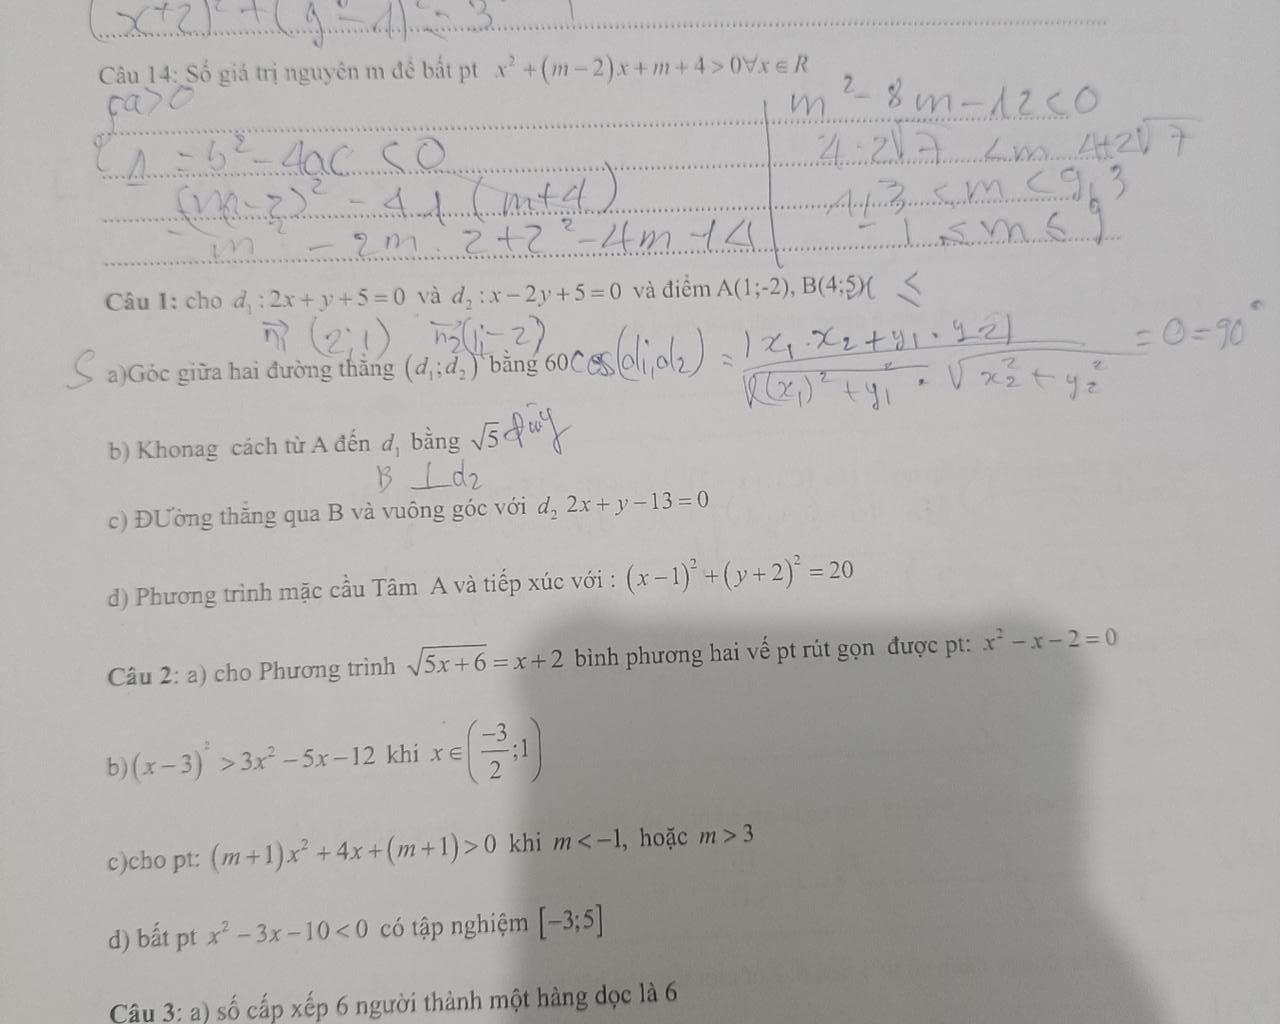 (x+2)² + (y-1)² = 3
Câu 14: Số giá trị nguyên m để bất pt x² + (m − 2)x + m + 4 > 0∀x ∈ R
{a>0
Δ = b² - 4ac < 0
= (m-2)² - 4.1.(m+4)
m² - 2m.2+2² - 4m+4
m² - 8m - 12 < 0
4-2√7 < m 4+2√7
-1,3 < m < 9,3
-1 ≤ m ≤ 9
Câu 1: cho d₁ : 2x + y + 5 = 0 và d₂ : x − 2y + 5 = 0 và điểm A(1;-2), B(4;5)( ≤
n₁ (2;1) n₂(1;-2)
S a)Góc giữa hai đường thẳng (d₁;d₂) bằng 60 cos(d₁,d₂) = |x₁.x₂ + y₁.y₂| / √(x₁)² + y₁² . √x₂² + y₂² = 0 = 90°
b) Khonag cách từ A đến d₁ bằng √5
B ⊥ d₂
c) ĐƯờng thẳng qua B và vuông góc với d₂ 2x + y − 13 = 0
d) Phương trình mặc cầu Tâm A và tiếp xúc với : (x − 1)² + (y + 2)² = 20
Câu 2: a) cho Phương trình √5x + 6 = x + 2 bình phương hai vế pt rút gọn được pt: x² − x − 2 = 0
b)(x − 3)² > 3x² − 5x − 12 khi x ∈ (−3/2;1)
c)cho pt: (m + 1)x² + 4x + (m + 1) > 0 khi m < −1, hoặc m > 3
d) bất pt x² − 3x − 10 < 0 có tập nghiệm [−3;5]
Câu 3: a) số cấp xếp 6 người thành một hàng dọc là 6